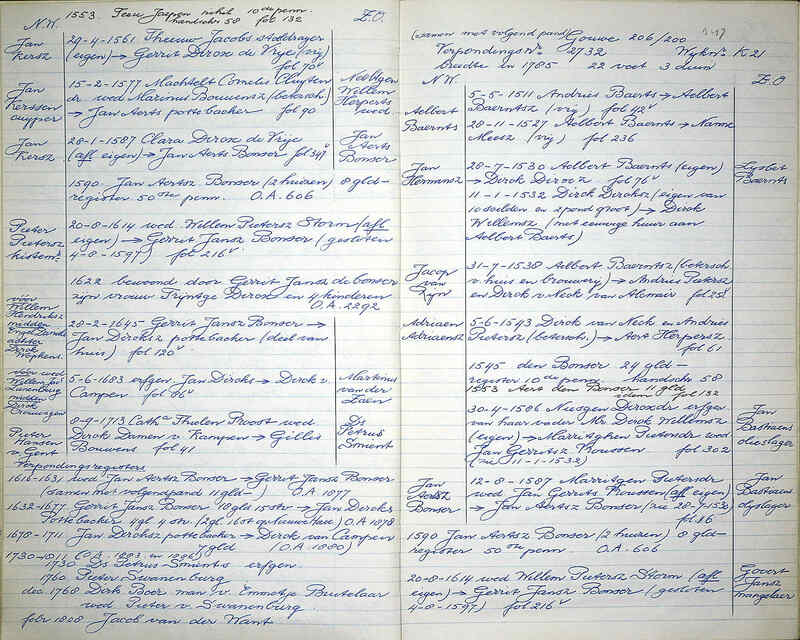 1553. Jaspen nihil 10de penn.
handschr 58 fol 132
N.W. Z.O.
Jan
Kersz
29-4-1561 Theeuw Jacobs stedebode
(eigen) → Gerrit Dircxz de Vrije (vrij)
fol 70v
Jan
Kerssen
cuyper
15-2-1577 Machtelt Cornelis Cluyten
dr wed Marinus Bouwensz (betersch.)
→ Jan Aerts pottebacker fol 90
Neeltgen
Willem
Herperts
wed
Jan
Kersz
28-1-1587 Clara Dircx de Vrije
(afl eigen) → Jan Aerts Bonser fol 34v
Jan
Aerts
Bonser
1590 Jan Aertsz Bonser (2 huizen) 8 gld-
register 50ste penn. O.A. 606
Pieter
Pietersz
kistem.
20-8-1614 wed. Willem Pietersz Storm (afl
eigen) → Gerrit Jansz Bonser (gesloten
4-8-1597) fol 216v
1622 bewoond door Gerrit Jansz de bonser
zijn vrouw Trijntge Dircx en 4 kinderen
O.A. 2292
vóór
Willem
Hendricksz
midden
Engel Daniels
achter
Dirck
Wophens.
28-2-1645 Gerrit Jansz Bonser →
Jan Dircksz pottebacker (deel van
huis) fol 120v
vóór wed
Willem Jas
Swanenburg
midden
Dirck
Crouwingen
5-6-1683 erfgen Jan Dircks → Dirck v.
Campen fol 86v
Martinus
van der
Zaen
Pieter
Hansen
v Gent
8-9-1713 Catha Thielen Proost wed.
Dirck Damen v Kampen → Gillis
Bouwens fol 41
Ds
Petrus
Smient
Verpondingsregisters
1616-1631 wed Jan Aertsz Bonser → Gerrit Jansz Bonser
(samen met volgend pand 11 gld-) O.A. 1877
1632-1677 Gerrit Jansz Bonser 10 gld 15 st → Jan Dircks
Pottebacker 4 gl 4 st. O.A. 1878
1670-1711 Jan Dircksz pottebacker → Dirck van Campen
7 gld (O.A. 1880)
1730-1811 (O.A. 1883 en 1896)
1730 Ds Petrus Smients erfgen.
1760 Pieter Swanenburg
dec 1768 Dirk Boer man v. Emmetje Beutelaar
wed Pieter v. Swanenburg.
febr 1808 Jacob van der Want.
(samen met volgend pand) Gouwe 206/200
Verpondingsnr 2732 Wijknr K 21
breedte in 1785 22 voet 3 duim
N.W. Z.O
Aelbert
Baernts
5-5-1511 Andries Baerts → Aelbert
Baerntsz (vrij) fol 42v
28-11-1527 Aelbert Baernts → Nanne
Meesz (vrij) fol 236
Jan
Hermansz
28-7-1530 Aelbert Baernts (eigen)
→ Dirck Dircxz fol 76v
Lijsbet
Baernts
11-1-1532 Dirck Dircksz (eigen van
10 scilden en 2 pond groot) → Dirck
Willemsz (met eeuwige huur aan
Aelbert Baerts)
Jacop
van
Rijn
31-7-1538 Aelbert Baernts (betersch.
v huis en brouwerij) → Andries Pietersz
en Dirck v. Neck van Alcmair fol 25v
Adriaen
Adriaensz
5-6-1543 Dirck van Neck en Andries
Pietersz (betersch.) → Aert Herpersz
fol 61
1545 den Bonser 24 gld-
register 10de penn. handschr 58
1553 Aert den Bonser 11 gld
idem fol 132
30-4-1586 Neesgen Dircxdr erfgen.
van haar vader Mr. Dirck Willemsz
(eigen) → Marritghen Pietersdr wed
Jan Gerritsz Proussen fol 302
(zie 11-1-1532)
Jan
Bastiaens
olieslager
Jan
Aertsz
Bonser
12-8-1587 Marritgen Pietersdr
wed Jan Gerrits Proussen (afl eigen)
→ Jan Aertsz Bonser (zie 28-7-1530)
fol 16
Jan
Bastiaens
olyslager
1590 Jan Aertsz Bonser (2 huizen) 8 gld-
register 50ste penn. O.A. 606
20-8-1614 wed Willem Pietersz Storm (afl
eigen) → Gerrit Jansz Bonser (gesloten
4-8-1597) fol 216v
Govert
Jansz
mangelaer